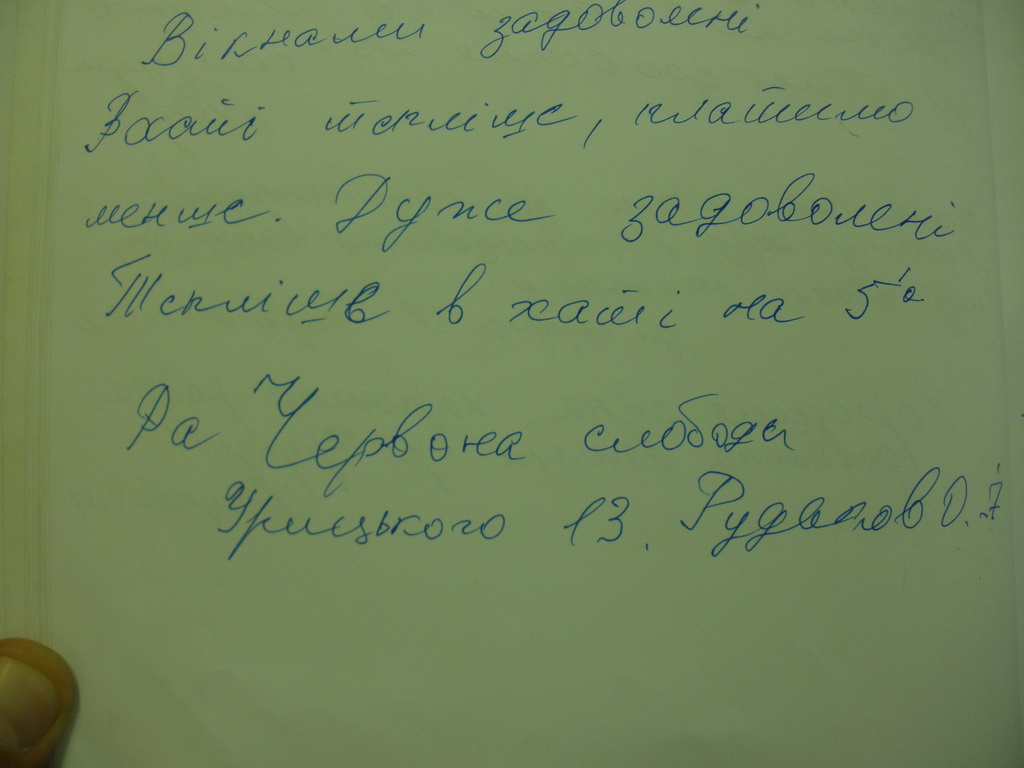 Вікнами задоволені
В хаті тепліще, платимо
менще. Дуже задоволені
Тепліще в хаті на 5°
Червона слобода
Урицького 13.